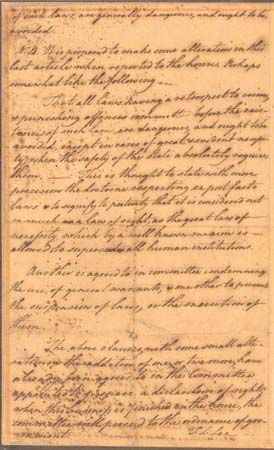 of such laws, are generally dangerous, and ought to be
avoided.
N.B. It is proposed to make some alteration in this
last article when reported to the house. Perhaps
somewhat like the following
That all laws having a retrospect to crimes,
& punishing offences committed before the exis-
tence of such laws, are dangerous, and ought to be
avoided, except in cases of great & evident necessi-
ty, when the safety of the state absolutely requires
them. This is thought to state with more
precision the doctrine respecting ex post facto
laws & to signify to posterity that it is considered not
so much as a law of right, as the great law of
necessity, which by the well known maxim is
allowed to supersede all human institutions.
Another is agreed to in committee condemning
the use of general warrants; & one other to prevent
the suspension of laws, or the execution of
them.
The above clauses, with some small alte-
rations, & the addition of one, or two more, have
already been agreed to in the Committee
appointed to prepare a declaration of rights;
when this business is finished in the house, the
committee will proceed to the ordinance of gov-
ernment.